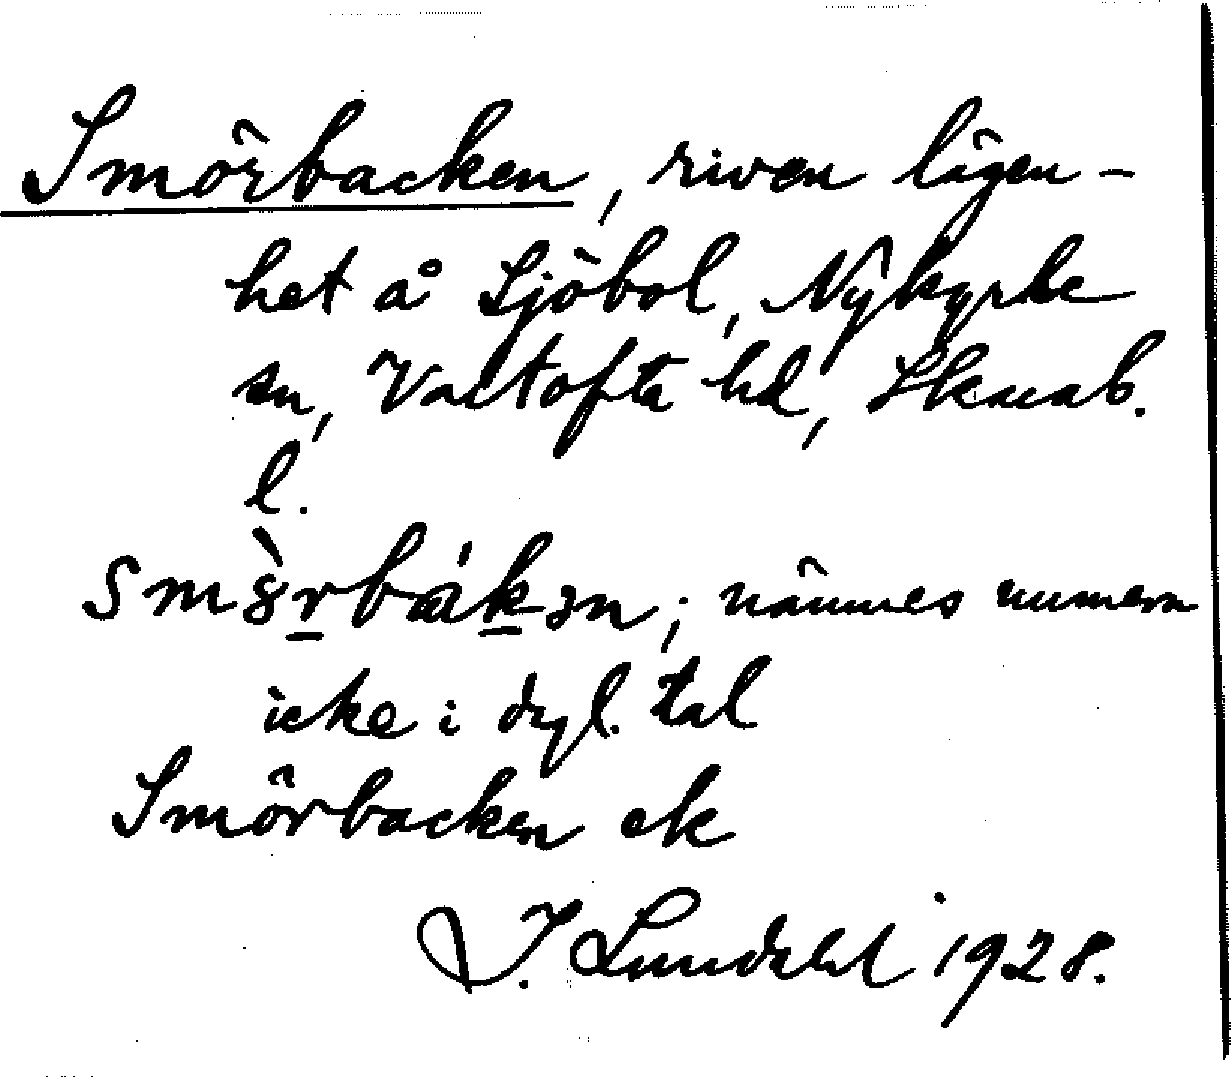 Smörbacken, riven lägen-
het å Sjöbol, Nykyrke
sn, Vartofta hd, Skarab.
l.
nämnes numera
icke i dagl. tal
Smörbacken ek
I. Lundahl 1928.